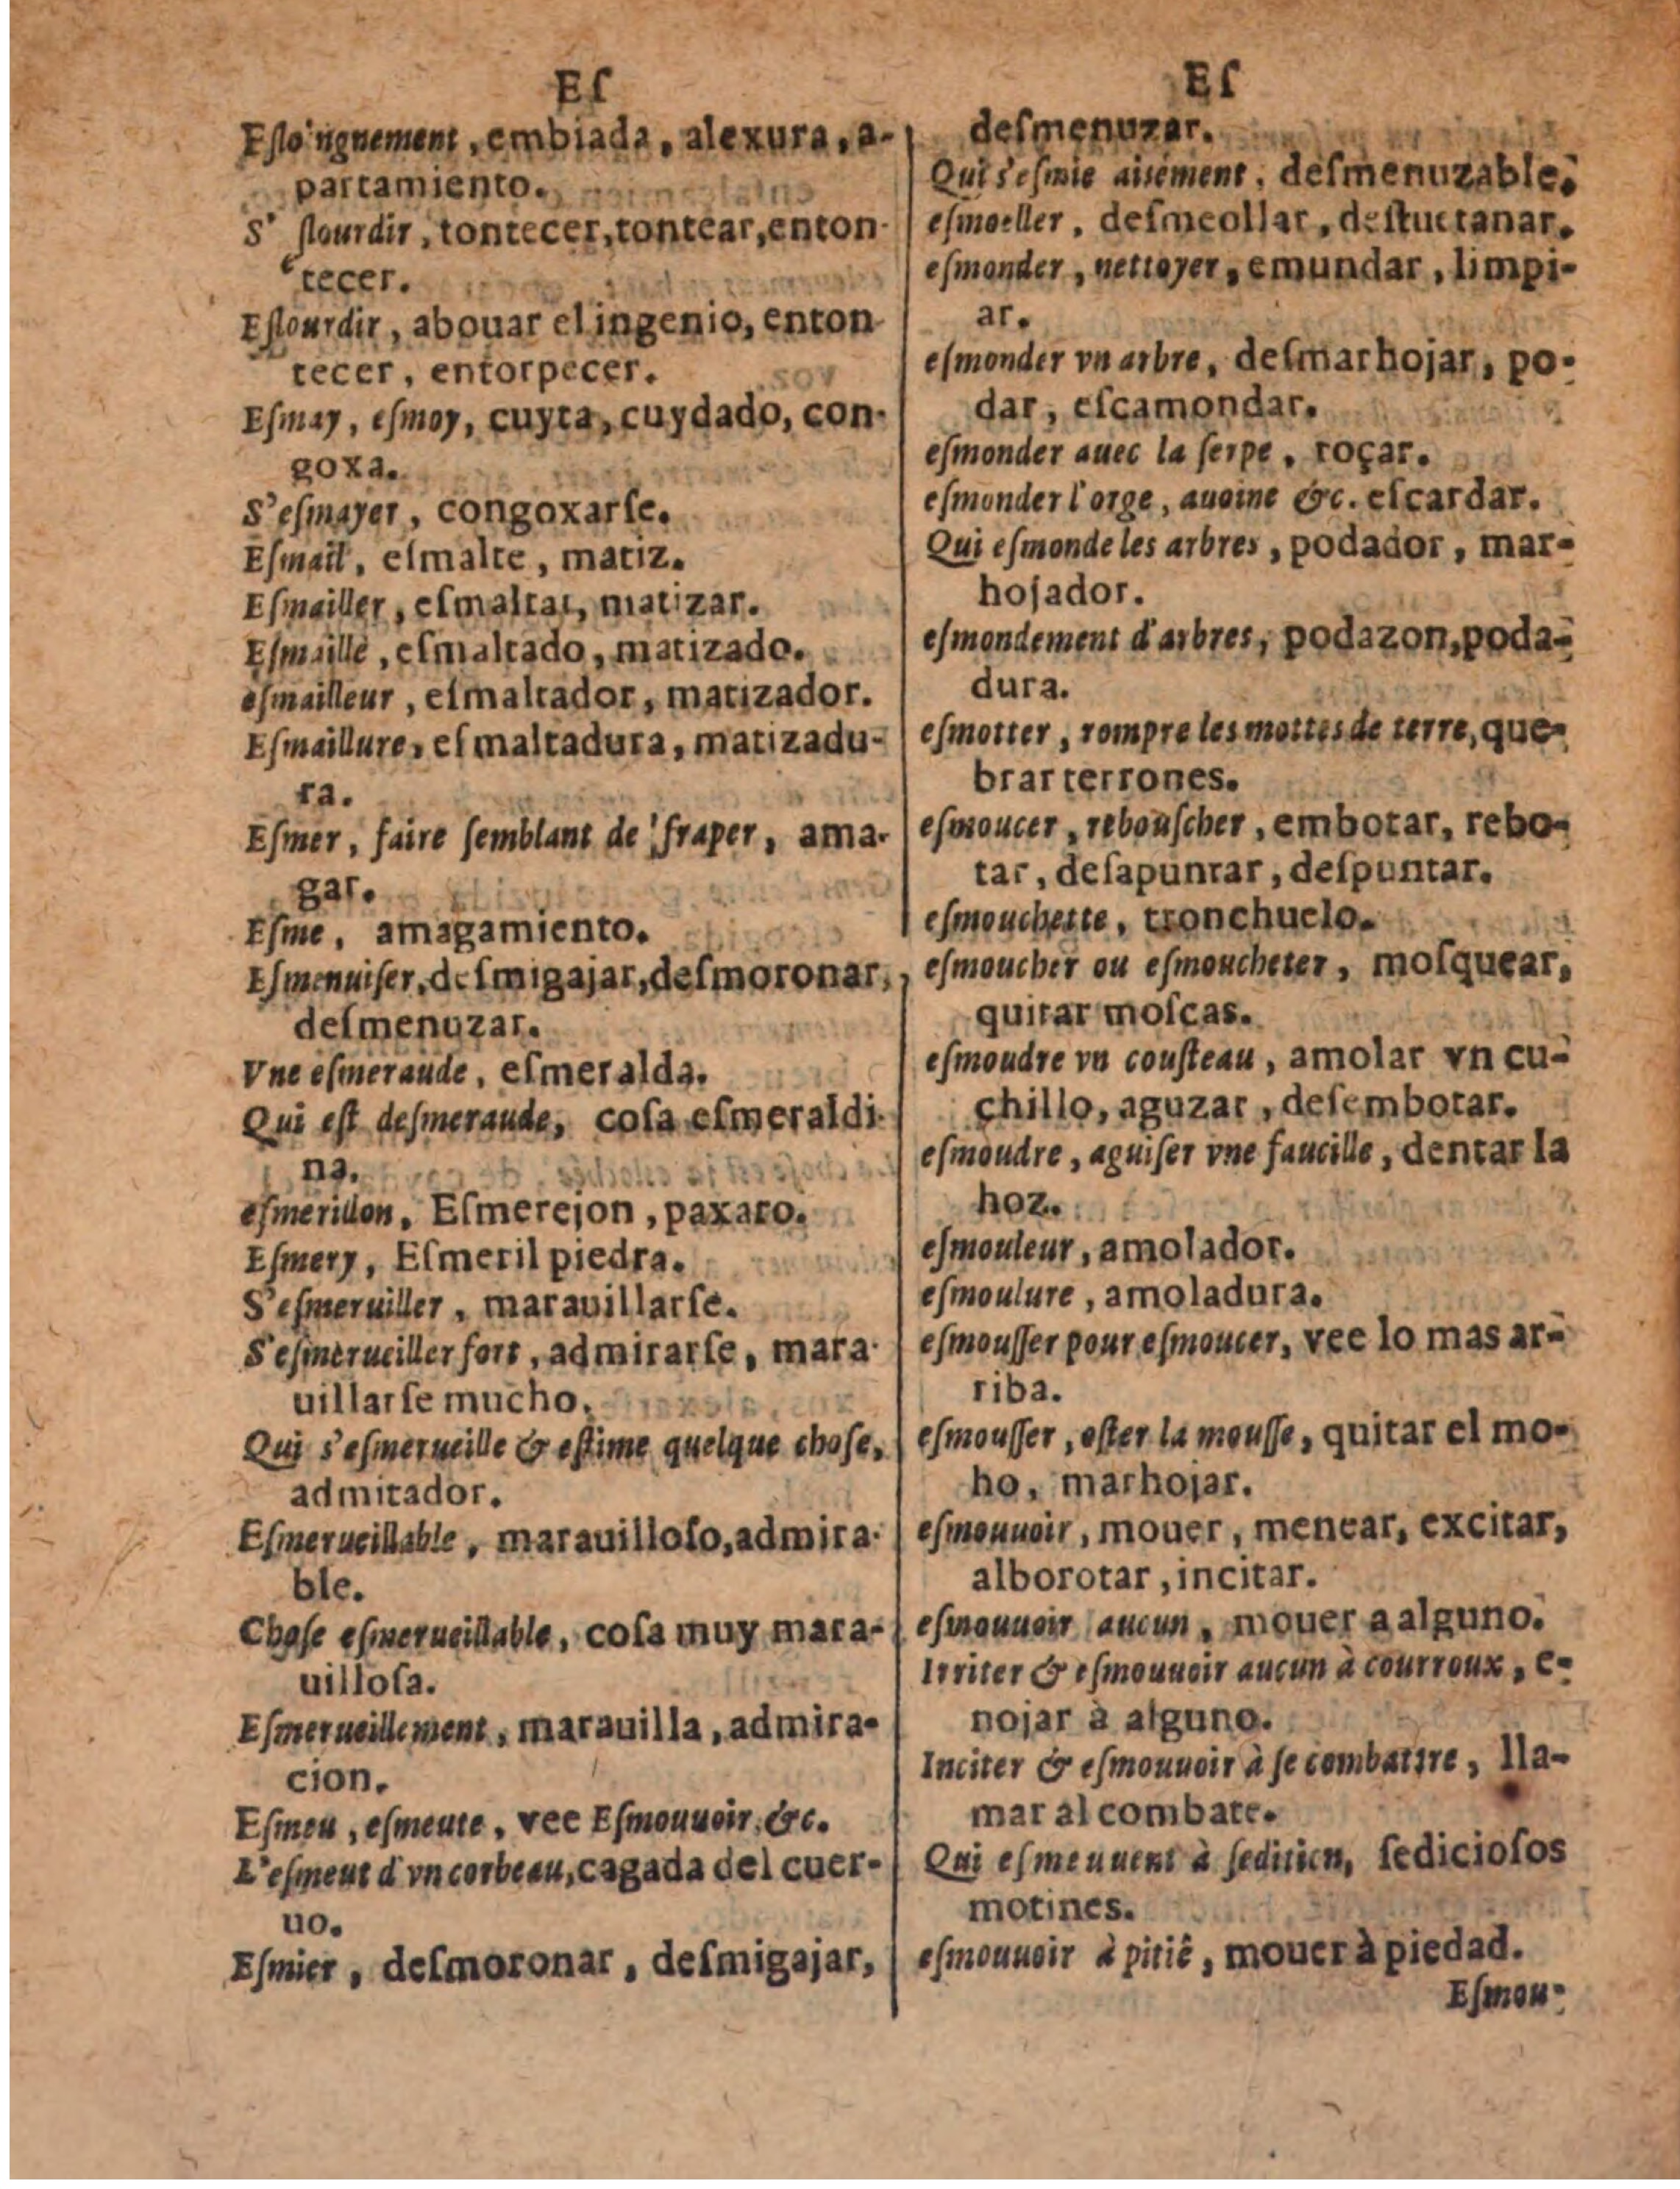 Eſ
Eſlo'ngnement, embiada, alexura, a-
partamiento.
S' eſlourdir, tontecer, tontear, enton-
tecer.
Eſlourdir, abouar el ingenio, enton-
tecer, entorpecer.
Eſmay, eſmoy, cuyta, cuydado, con-
goxa.
S'eſmayer, congoxarſe.
Eſmail, eſmalte, matiz.
Eſmailler, eſmaltar, matizar.
Eſmaillé, eſmaltado, matizado.
eſmailleur, eſmaltador, matizador.
Eſmaillure, eſmaltadura, matizadu-
ra.
Eſmer, faire ſemblant de fraper, ama-
gar.
Eſme, amagamiento.
Eſmenuiſer, deſmigajar, deſmoronar,
deſmenuzar.
Vne eſmeraude, eſmeralda.
Qui eſt deſmeraude, coſa eſmeraldi-
na.
eſmerillon, Eſmerejon, paxaro.
Eſmery, Eſmeril piedra.
S'eſmeruiller, marauillarſe.
S'eſmerueiller fort, admirarſe, mara-
uillarſe mucho.
Qui s'eſmerueille & eſtime quelque choſe,
admirador.
Eſmerueillable, marauilloſo, admira-
ble.
Choſe eſmerueillable, coſa muy mara-
uilloſa.
Eſmerueillement, marauilla, admira-
cion.
Eſmeu, eſmeute, vee Eſmouuoir, &c.
L'eſmeut d'vn corbeau, cagada del cuer-
uo.
Eſmier, deſmoronar, deſmigajar,
Eſ
deſmenuzar.
Qui s'eſmie aiſément, deſmenuzable.
eſmoeller, deſmeollar, deſtuctanar.
eſmonder, nettoyer, emundar, limpi-
ar.
eſmonder vn arbre, deſmarhojar, po-
dar, eſcamondar.
eſmonder auec la ſerpe, roçar.
eſmonder l'orge, auoine &c. eſcardar.
Qui eſmonde les arbres, podador, mar-
hojador.
eſmondement d'arbres, podazon, poda-
dura.
eſmotter, rompre les mottes de terre, que-
brar terrones.
eſmoucer, rebouſcher, embotar, rebo-
tar, deſapuntar, deſpuntar.
eſmouchette, tronchuelo.
eſmoucher ou eſmoucheter, moſquear,
quitar moſcas.
eſmoudre vn couſteau, amolar vn cu-
chillo, aguzar, deſembotar.
eſmoudre, aguiſer vne faucille, dentar la
hoz.
eſmouleur, amolador.
eſmoulure, amoladura.
eſmouſſer pour eſmoucer, vee lo mas ar-
riba.
eſmouſſer, oſter la mouſſe, quitar el mo-
ho, marhojar.
eſmouuoir, mouer, menear, excitar,
alborotar, incitar.
eſmouuoir aucun, mouer a alguno.
Irriter & eſmouuoir aucun à courroux, e-
nojar à alguno.
Inciter & eſmouuoir à ſe combattre, lla-
mar al combate.
Qui eſmeuuent à ſedition, ſedicioſos
motines.
eſmouuoir à pitié, mouer à piedad.
Eſmou-